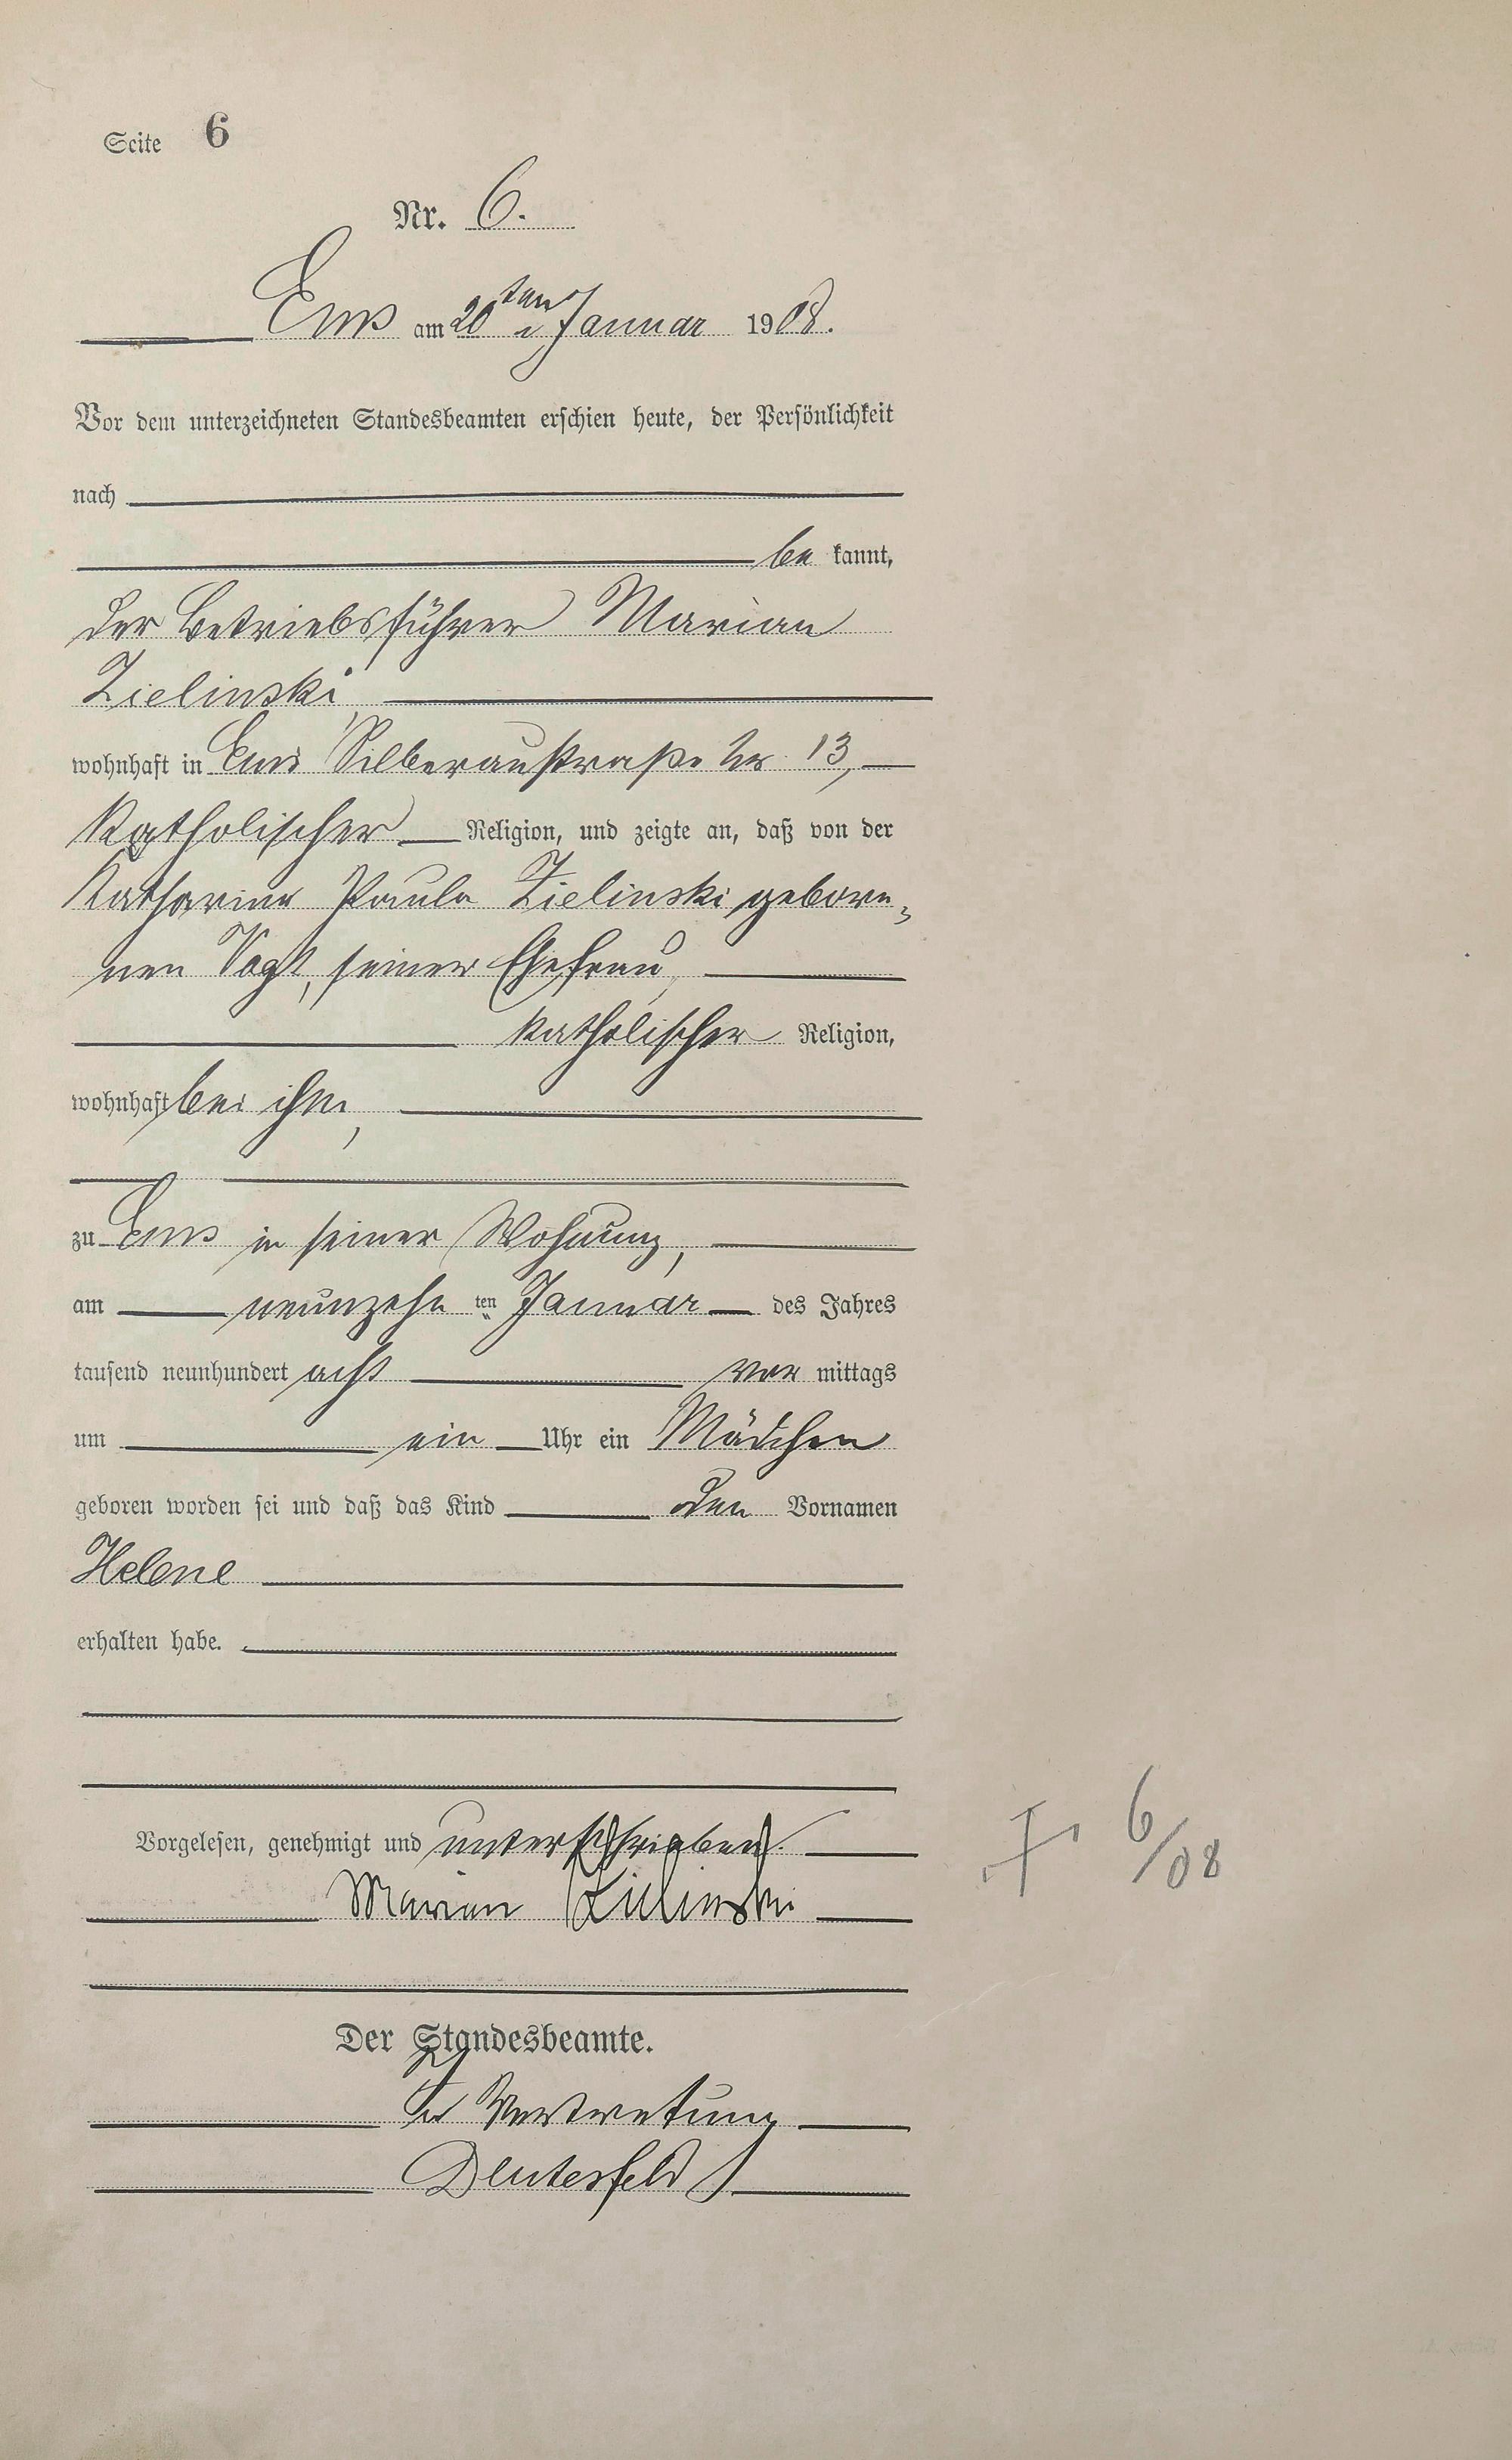 Seite 6
Nr. 6.
Ems am 20ten Januar 1908.
Vor dem unterzeichneten Standesbeamten erschien heute, der Persönlichkeit
nach
be kannt,
der Betriebsführer Marian
Zielinski,
wohnhaft in Ems Silberaustraße Nr. 13,
katholischer Religion, und zeigte an, daß von der
Katharina Paula Zielinski gebore-
nen Vogt, seiner Ehefrau,
katholischer Religion,
wohnhaft bei ihm,
zu Ems in seiner Wohnung,
am neunzehn ten Januar des Jahres
tausend neunhundert acht vor mittags
um ein Uhr ein Mädchen
geboren worden sei und daß das Kind den Vornamen
Helene
erhalten habe.
Vorgelesen, genehmigt und unterschrieben.
Marian Zielinski
† 6/08
Der Standesbeamte.
In Vertretung
Deutesfeld